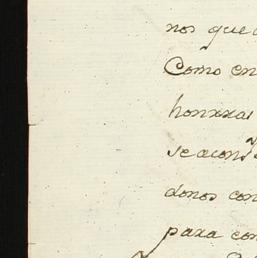 nos que
Como en
honrras
se acon
donos con
para con